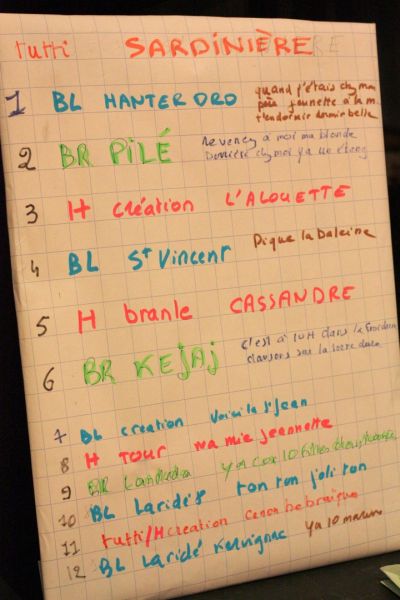 tutti SARDINIÈRE
1 BL HANTER DRO quand j'étais chez mon
père jeunette à la m
t'endormir dormir belle
2 BR PILÉ revenez à moi ma blonde
Derrière chez moi ya un étang
3 H création L'ALOUETTE
4 BL St Vincent Pique la baleine
5 H branle CASSANDRE
6 BR KEJAJ c'est à dans le
dansons sur la
7 BL creation Voici la St Jean
8 H TOUR ma mie jeannette
9 BR Landeda ya
10 BL Laridé 8 ton ton joli ton
11 tutti/H creation
12 BL Laridé Kervignac ya 10 marins